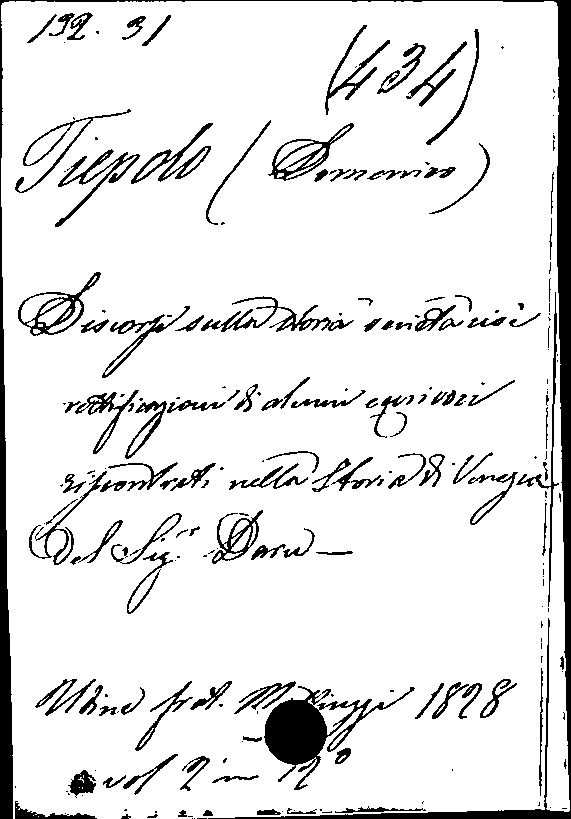 192. 31
(434)
Tiepolo (Domenico)
Discorsi sulla storia veneta cioè
rettificazioni di alcuni equivoci
riscontrati nella Storia di Venezia
Del Sigr Daru —
Udine frat. Mattiuzzi 1828
vol 2 in 12º